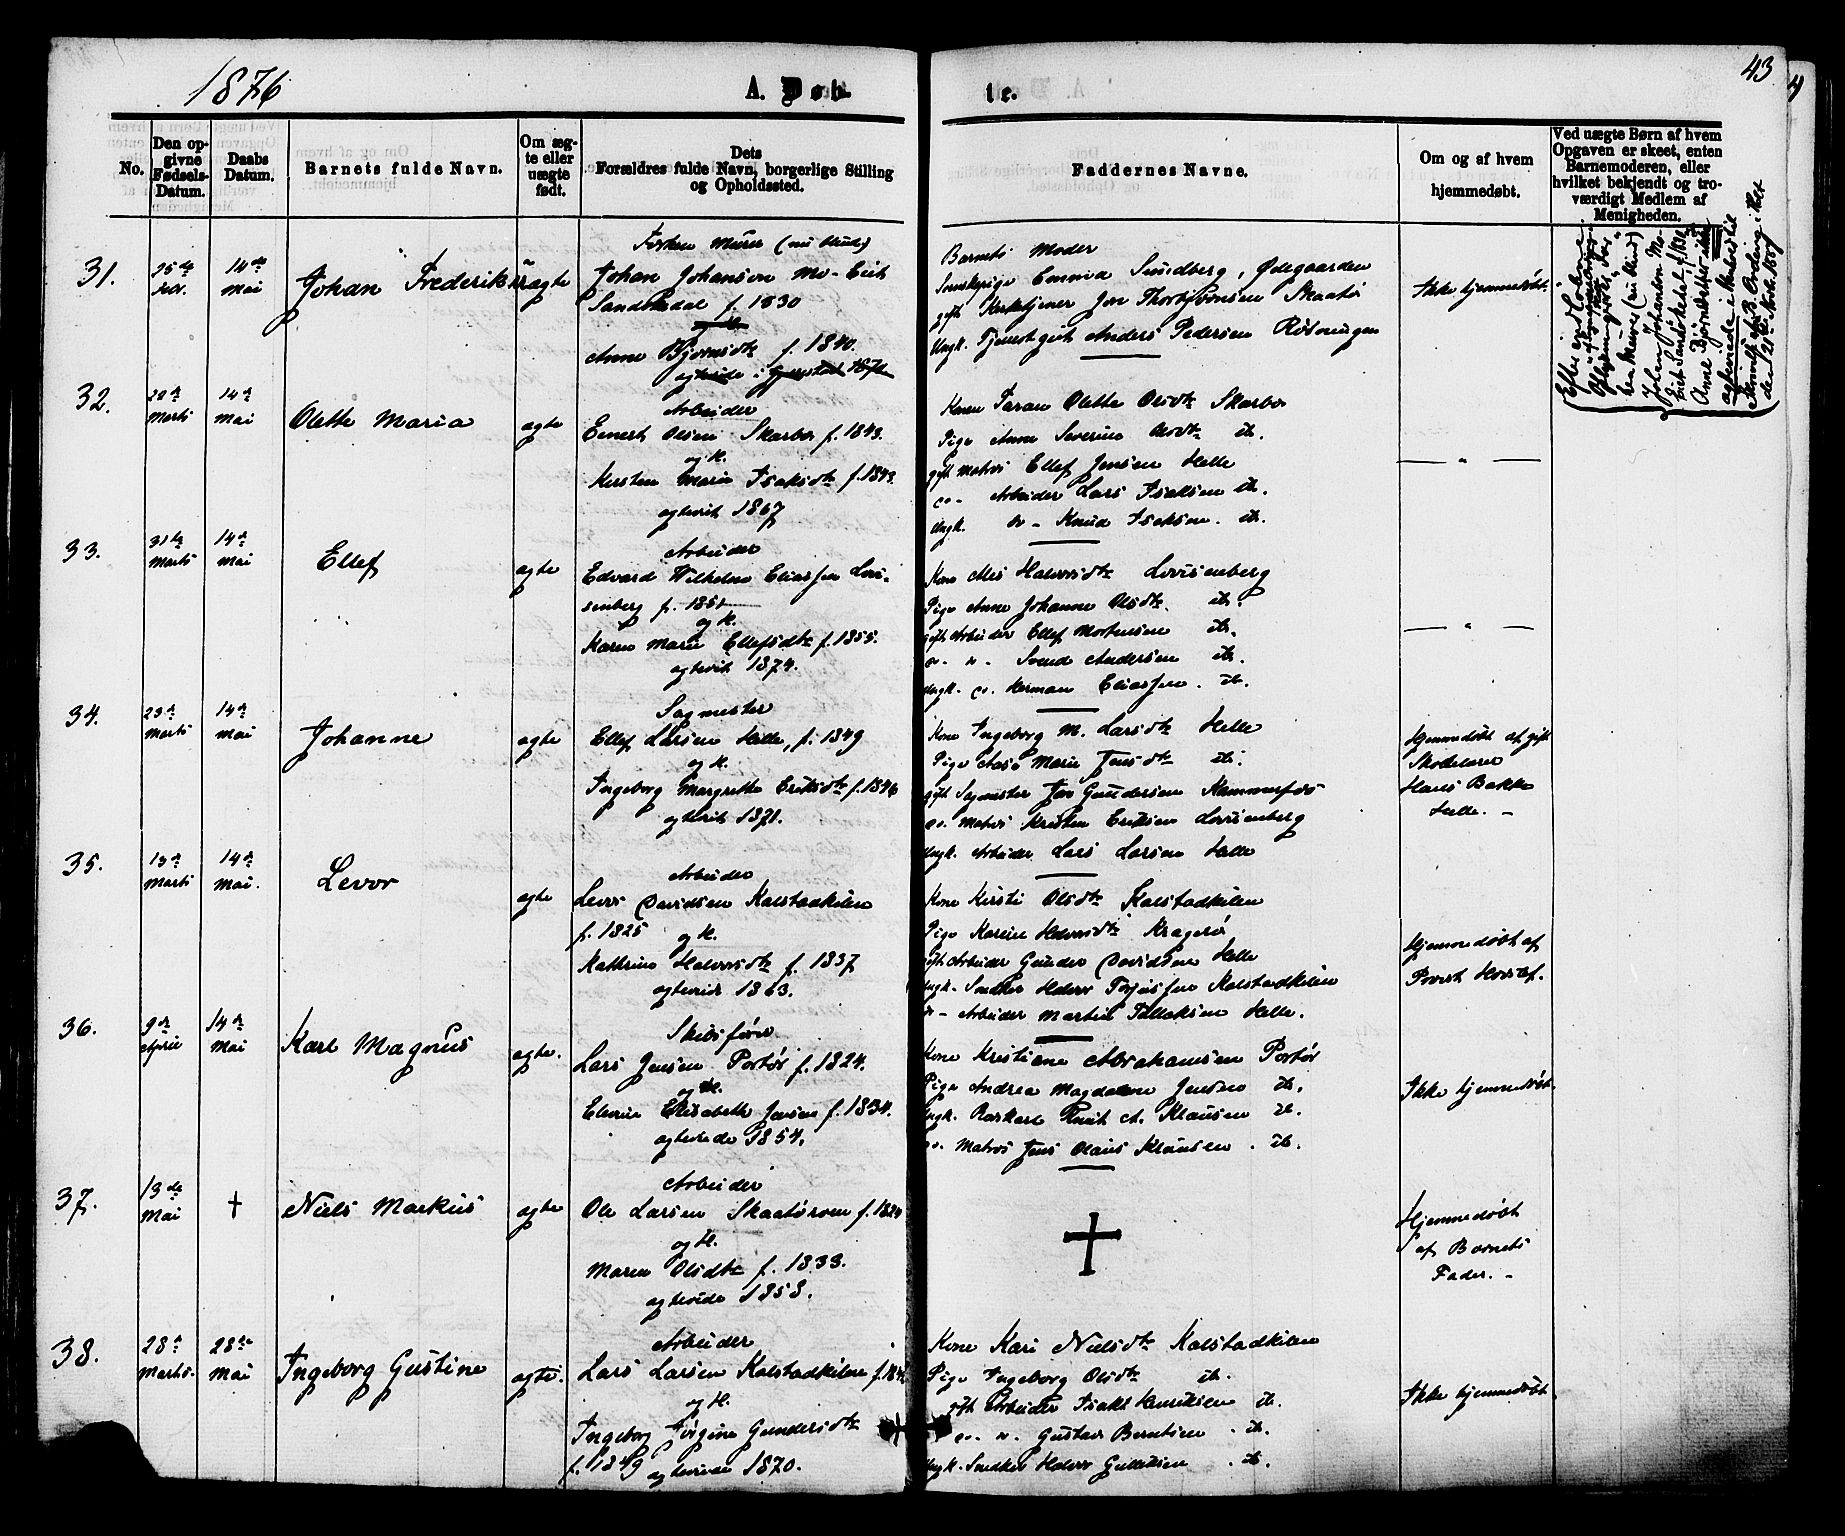 1876
A. Døb
te.
43
No.
Den op-
givne
Fødsels-
Datum.
Daabs
Datum.
Barnets fulde Navn.
Om æg-
te eller
uægte
født.
Dets
Forældres fulde Navn, borgerlige Stilling
og Opholdssted.
Faddernes Navne.
Om og af hvem
hjemmedøbt.
Ved uægte Børn af hvem
Opgaven er skeet, enten
Barnemoderen, eller
hvilket bekjendt og tro-
værdigt Medlem af
Menigheden.
31.
25de
Febr.
14de
Mai
Johan Frederik
uægte
Murer (nu blind)
Johan Johansen
f. 1830
Anne Bjørnsdtr f. 1840.
Barnets Moder
Emma Sundberg, Ødegaarden
gift Kirketjener Jon Thorbjørnsen Skaatø
Ungk. Tjenestgut Anders Pedersen
Ikke hjemmedøbt.
32.
28de
Marts
14de
Mai
Olette Maria
ægte
Arbeider
Ernest Olsen Skarbo f. 1843.
og H.
Kirsten Marie Isaksdtr f. 1843
ægteviet 1867
Kone Taran Olette Olsdtr Skarbo
Pige Anne Severine Olsdtr do.
gift Matros Ellef Jensen Helle
do- Arbeider Lars Isaksen do.
Ungk. do - Knud Isaksen. do.
— " —
33.
31te
Marts
14de
Mai
Ellef
ægte
Arbeider
Edvard Wilhelm Eliassen Lovi-
senberg f. 1851
og H.
Karen Marie Ellefsdtr f. 1855.
ægteviet 1874.
Kone Halvorsdtr Lovisenberg
Pige Anne Johanne Olsdtr. do.
gift Arbeider Ellef Mortensen do.
do. do. Svend Andersen do.
Ungk. do. Herman Eliassen. do.
— " —
34.
23de
Marts
14de
Mai
Johanne
ægte
Sagmester
Ellef Larsen Helle, f. 1849
og H.
Ingeborg Margrethe Eriksdtr f. 1846
ægteviet 1871.
Kone Ingeborg M. Larsdtr Helle
Pige Aase Marie Jensdtr do.
gift Sagmester Jon Gundersen Kammerfos
do. Matros Kristen Eriksen Lovisenberg
Ungk. Arbeider Lars Larsen Helle
Hjemmedøbt af gift
Skolelærer
Hans Bakke
Helle. -
35.
13de
Marts
14de
Mai.
Levor
ægte
Arbeider
Levor Davidsen Kalstadkilen
f. 1825
og H.
Kathrine Halvorsdtr f. 1837
ægteviet 1863.
Kone Kirsti Olsdtr Kalstadkilen
Pige Karine Halvorsdtr Kragerø
gift Arbeider Gunder Davidsen Helle
Ungk. Snedker Halvor Torjussen Kalstadkilen
do - Arbeider Martin Tellefsen Helle.
Hjemmedøbt af
36.
9de
April
14de
Mai
Karl Magnus
ægte.
Skibsfører
Lars Jensen Portør f. 1824.
og H.
Elevine Elisabeth Jensen f. 1834.
ægteviede 1854.
Kone Kristiane Abrahamsen Portør
Pige Andrea Magdalene Jensen do.
Ungk. Knut A. Klausen do.
do. Matros Jens Olaus Klausen. do.
Ikke hjemmedøbt.
37.
13de
Mai
†
Niels Markus
ægte
Arbeider
Ole Larsen Skaatøroen f. 1824
og H.
Maren Olsdtr f. 1833.
ægteviede 1858.
†
Hjemmedøbt
af Barnets
Fader. -
38.
28de
Marts.
28de
Mai
Ingeborg Gustine
ægte.
Arbeider
Lars Larsen Kalstadkilen
og H.
Ingeborg Jørgine Gundersdtr
f. 1849 ægteviet 1870.
Kone Kari Nielsdtr Kalstadkilen
Pige Ingeborg Olsdtr do.
gift Arbeider Isak Henriksen do.
do. do. Gustav Berntsen. do.
Ungk. Snedker Halvor Gulliksen. do.
Ikke hjemmedøbt.